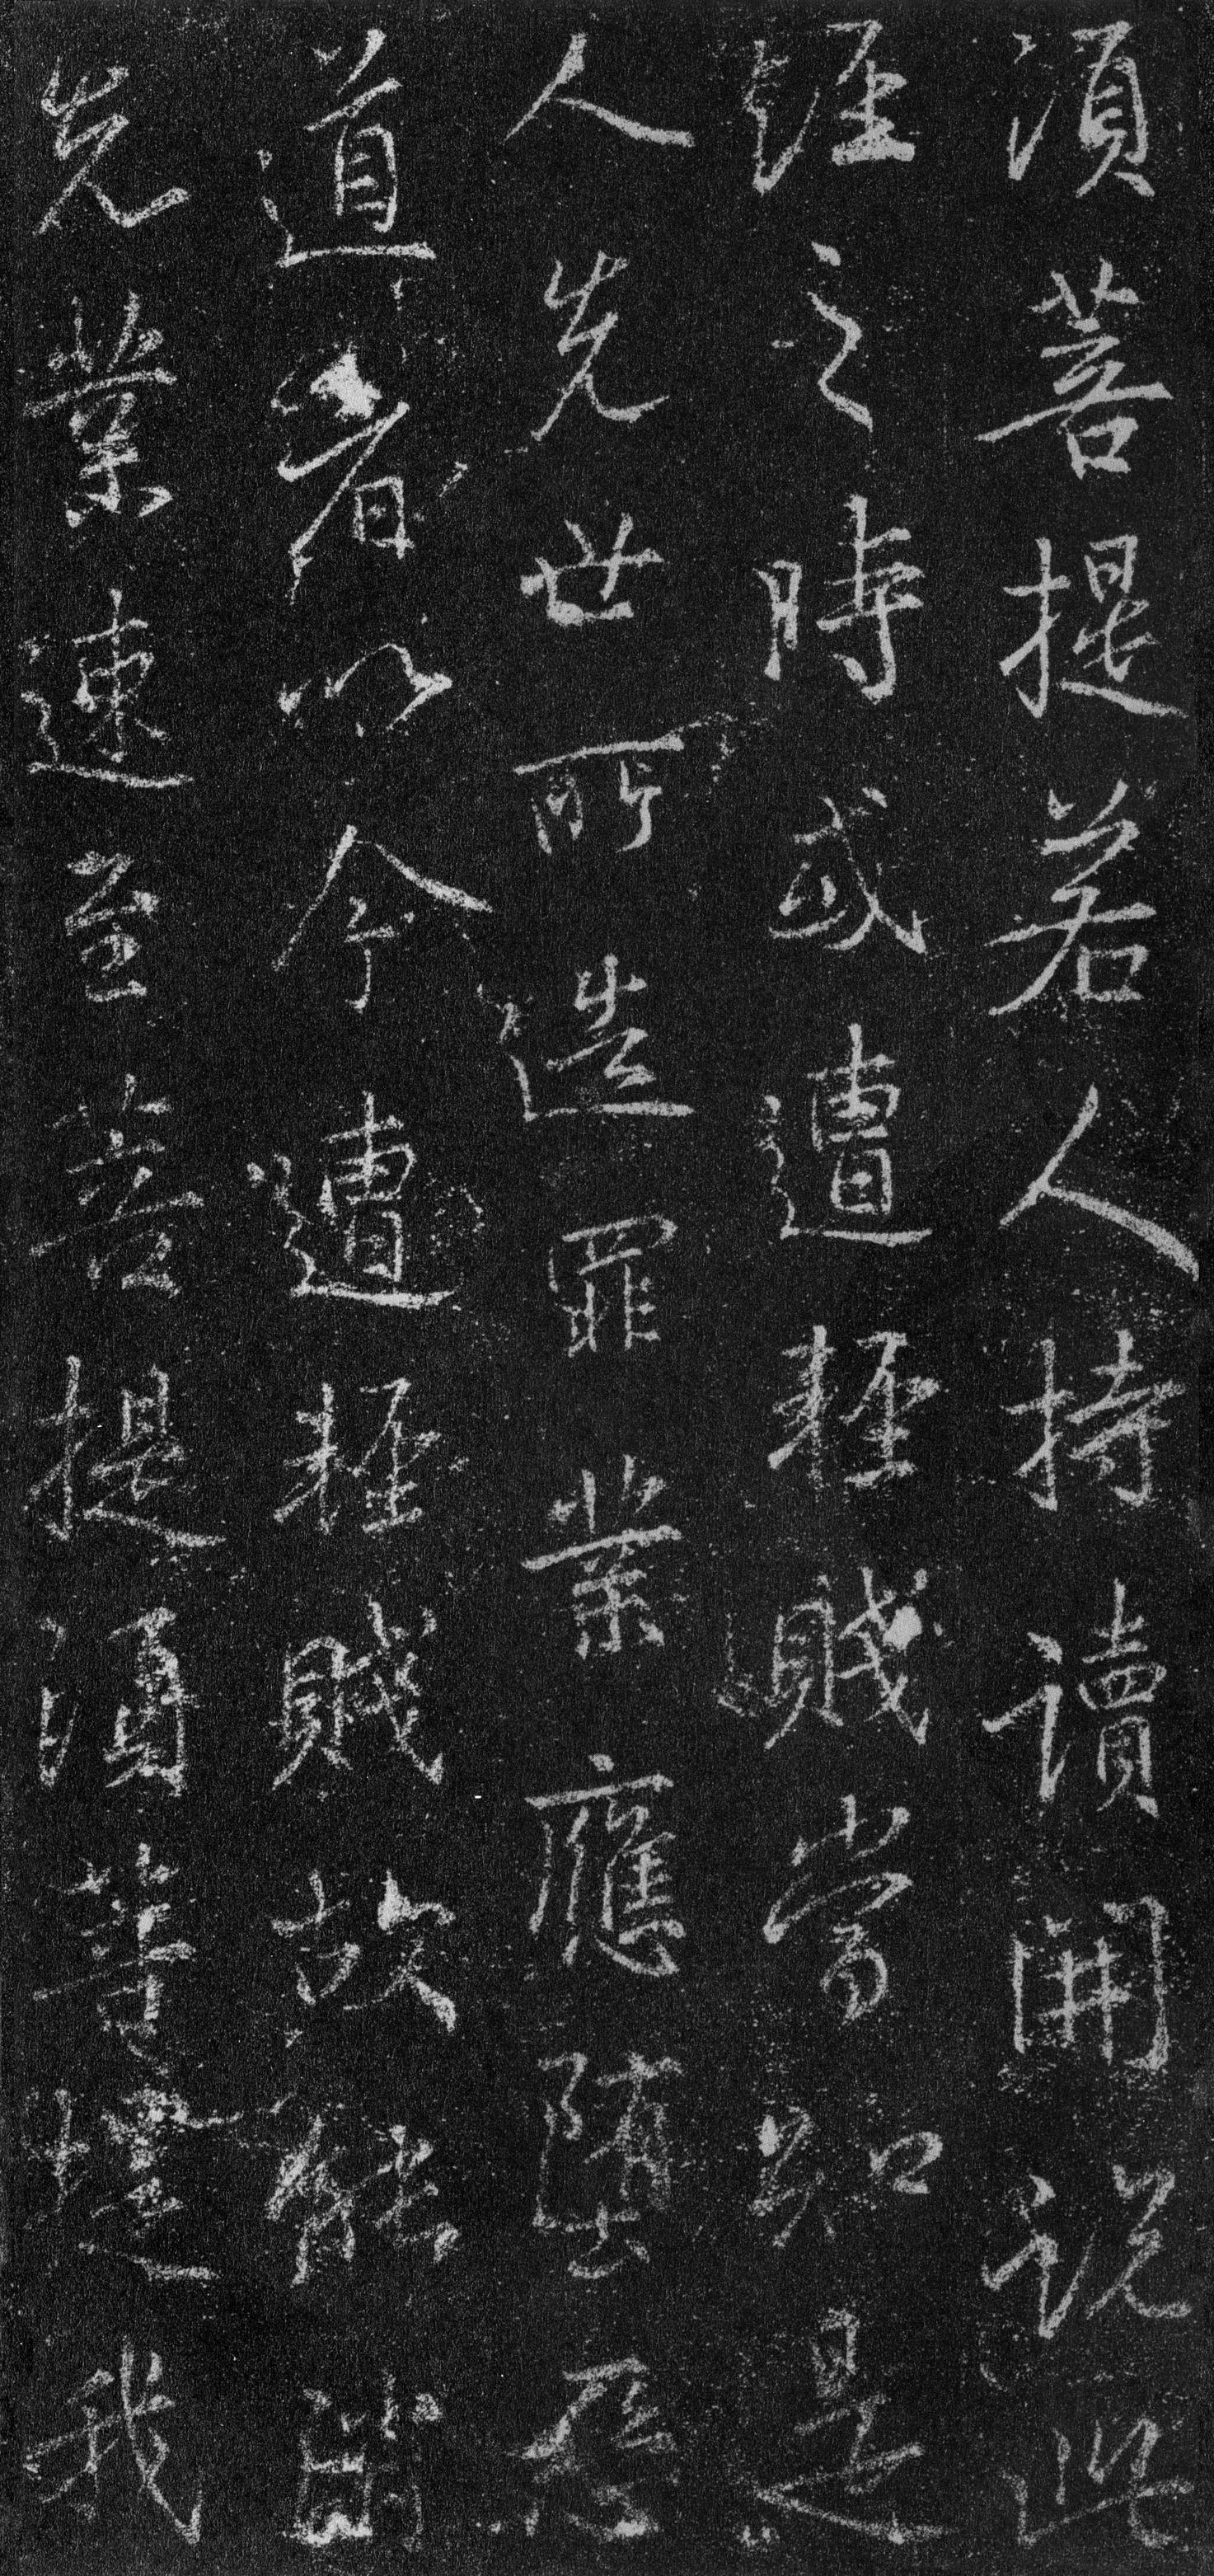 須菩提若人持讀開說此
經之時或遭輕賤當知是
人先世所造罪業應墮惡
道者以今遭輕賤故能
先業速至菩提須菩提我